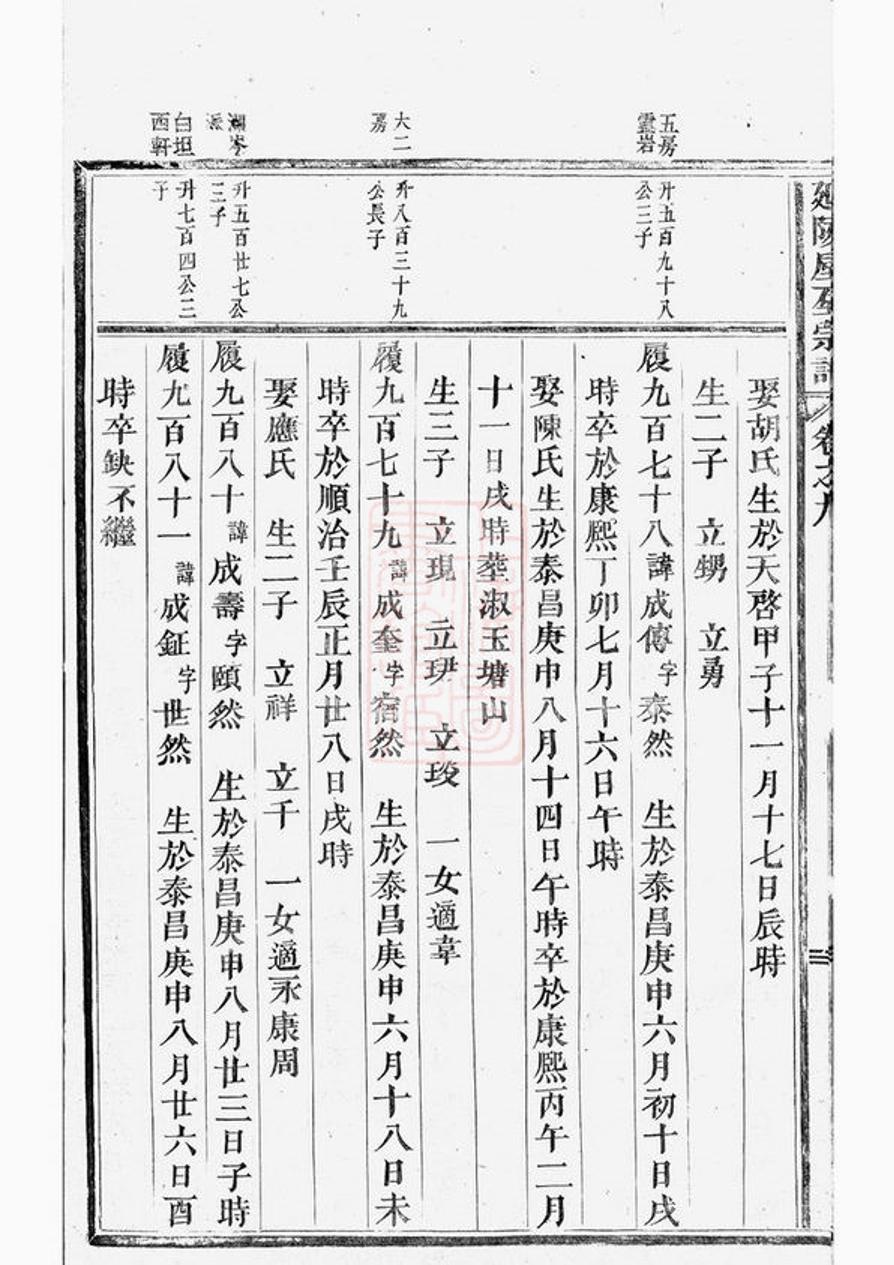 宗譜 卷之九
三
娶胡氏生於天啓甲子十一月十七日辰時
生二子 立甥 立勇
五房
雲岩
升五百九十八
公三子
履九百七十八諱成傳字泰然 生於泰昌庚申六月初十日戌
時卒於康熙丁卯七月十六日午時
娶陳氏生於泰昌庚申八月十四日午時卒於康熙丙午二月
十一日戌時塟淑玉塘山
生三子 立現 立 立 一女適韋
大二
房
升八百三十九
公長子
履九百七十九諱成奎字宿然 生於泰昌庚申六月十八日未
時卒於順治壬辰正月廿八日戌時
娶應氏 生二子 立祥 立千 一女適永康周
湖岑
派
升五百廿七公
三子
履九百八十諱成壽字頤然 生於泰昌庚申八月廿三日子時
白坦
西軒
升七百四公三
子
履九百八十一諱成鉦字世然 生於泰昌庚申八月廿六日酉
時卒缺不繼